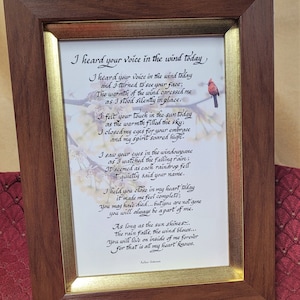 I heard your voice in the wind today
I heard your voice in the wind today
and I turned to see your face;
The warmth of the wind caressed me
as I stood silently in place.
I felt your touch in the sun today
as its warmth filled the sky;
I closed my eyes for your embrace
and my spirit soared high.
I saw your eyes in the windowpane
as I watched the falling rain;
It seemed as each raindrop fell
it quietly said your name.
I held you close in my heart today
it made me feel complete;
You may have died...but you are not gone
you will always be a part of me.
As long as the sun shines...
the rain falls, the wind blows...
You will live on inside of me forever
for that is all my heart knows.